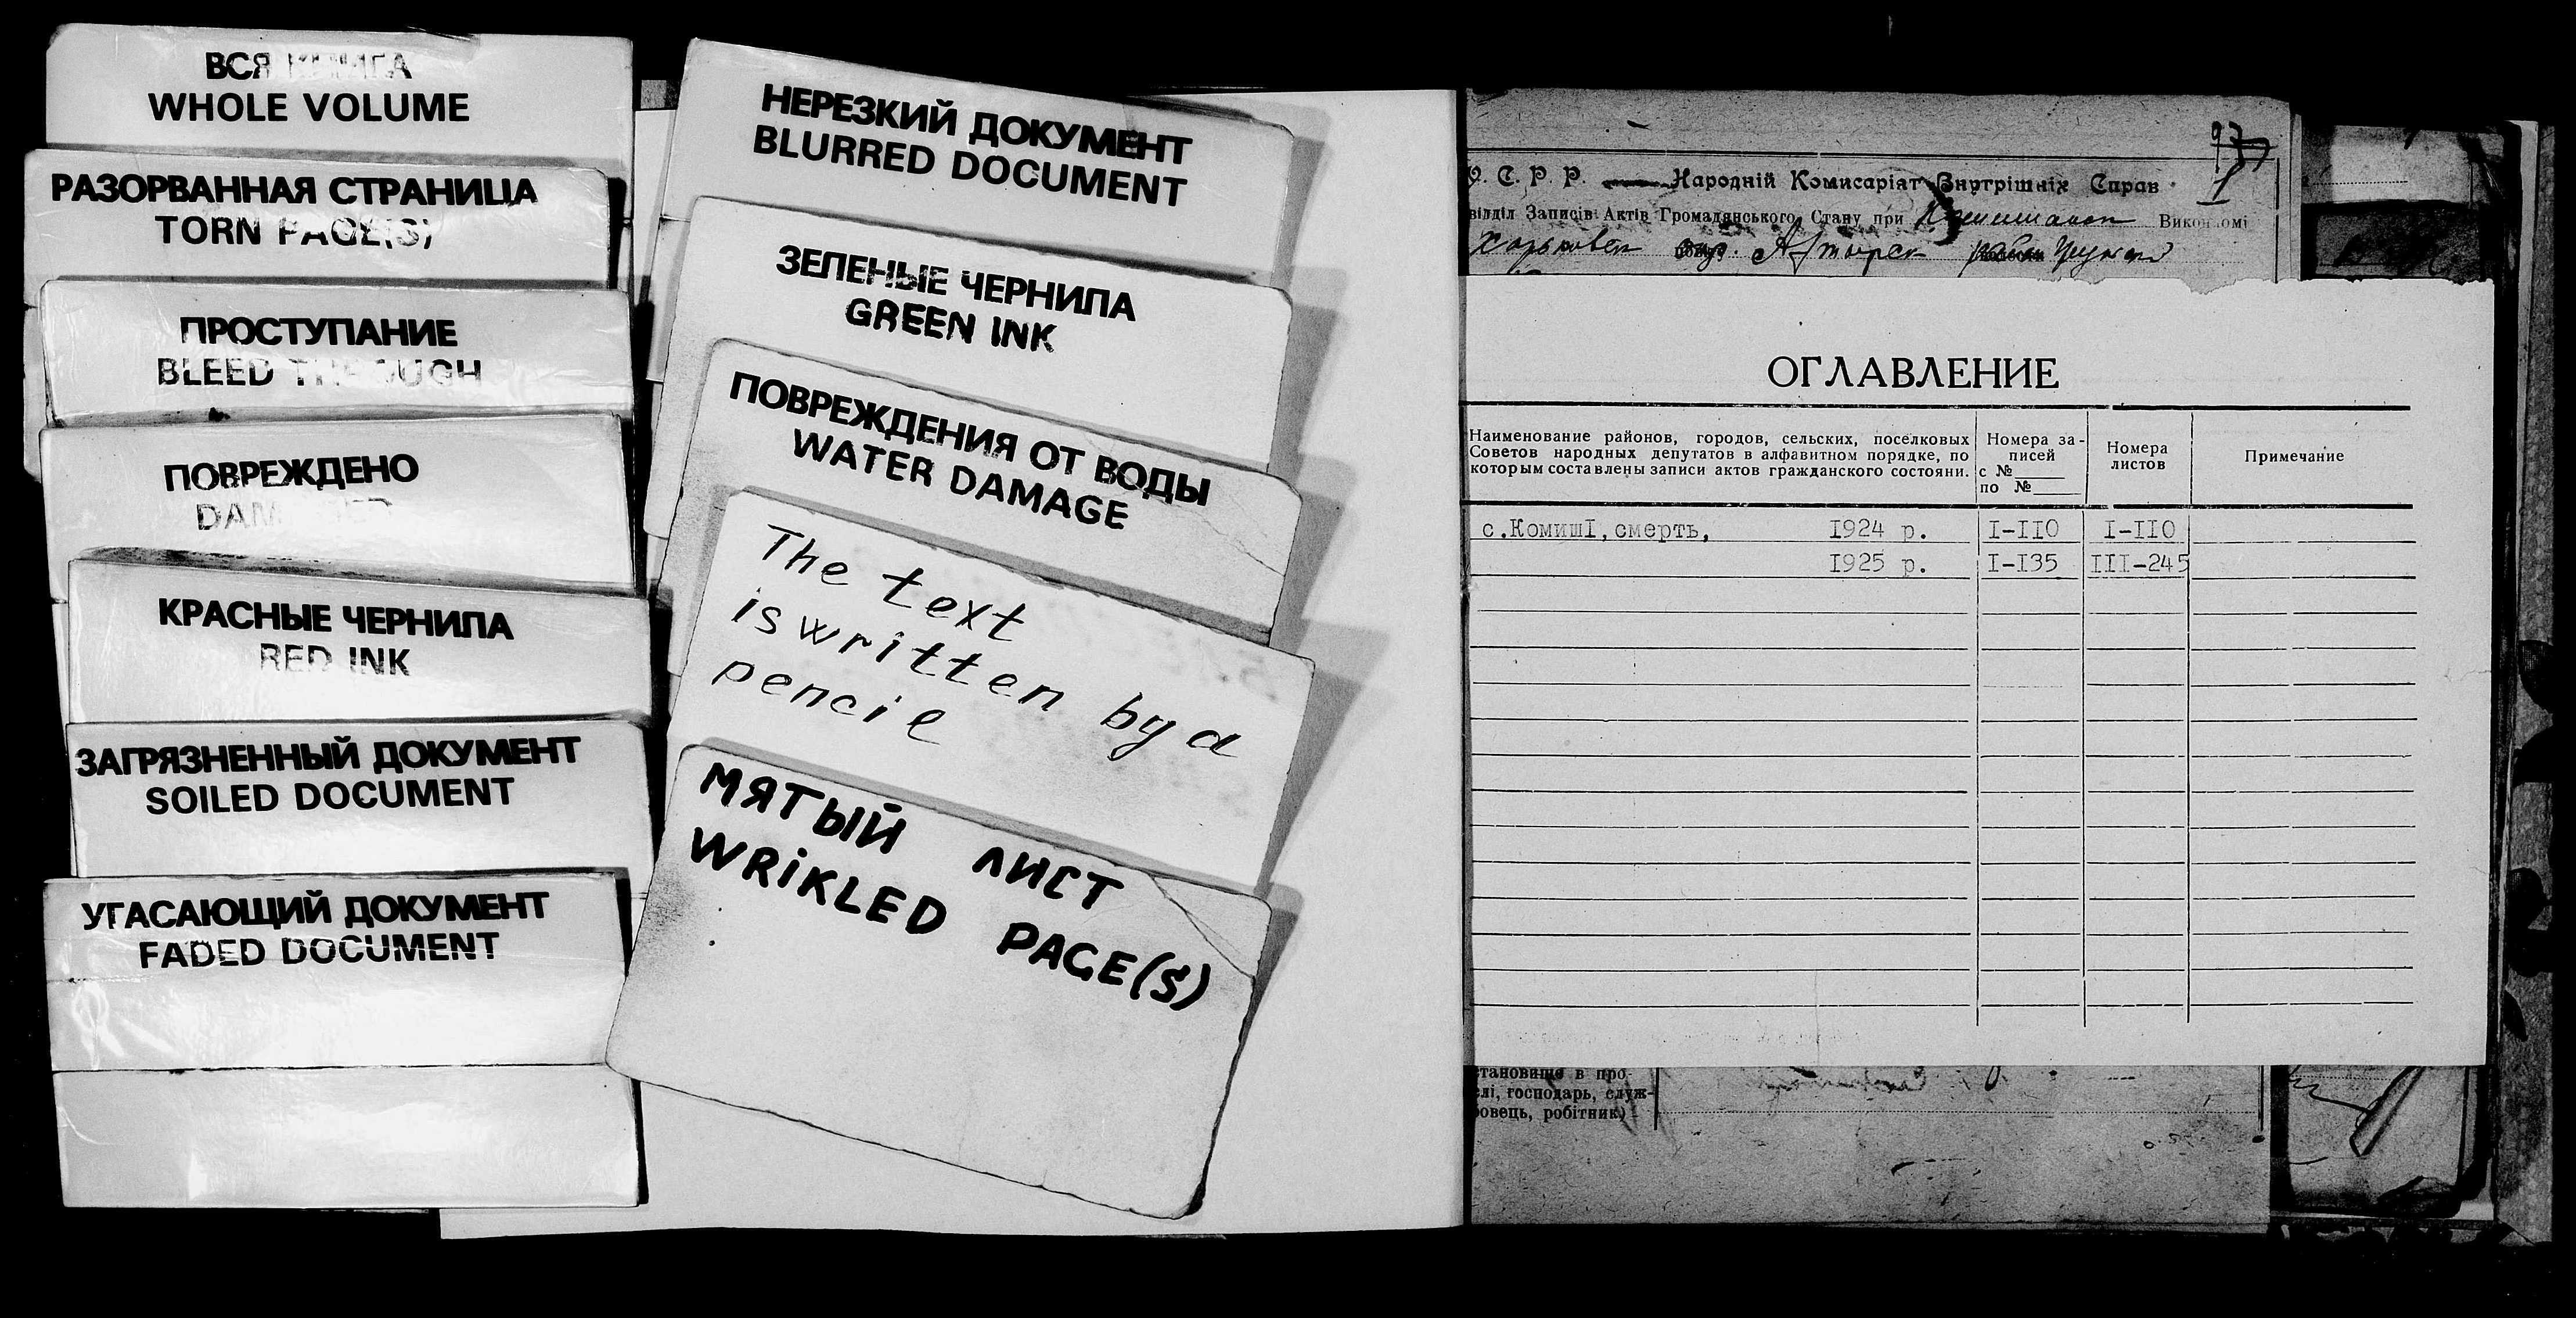 ВСЯ КНИГА
WHOLE VOLUME
РАЗОРВАННАЯ СТРАНИЦА
TORN PAGE(S)
ПРОСТУПАНИЕ
BLEED THROUGH
ПОВРЕЖДЕНО
DAMAGED
КРАСНЫЕ ЧЕРНИЛА
RED INK
ЗАГРЯЗНЕННЫЙ ДОКУМЕНТ
SOILED DOCUMENT
УГАСАЮЩИЙ ДОКУМЕНТ
FADED DOCUMENT
НЕРЕЗКИЙ ДОКУМЕНТ
BLURRED DOCUMENT
ЗЕЛЕНЫЕ ЧЕРНИЛА
GREEN INK
ПОВРЕЖДЕНИЯ ОТ ВОДЫ
WATER DAMAGE
The text
is written by a
pencil
МЯТЫЙ ЛИСТ
WRiKLED PAGE(S)
У. С. Р. Р. — Народній Комисаріят Внутрішніх Справ
відділ Записів Актів Громадянського Стану при Викон
ОГЛАВЛЕНИЕ
Наименование районов, городов, сельских, поселковых
Советов народных депутатов в алфавитном порядке, по
которым составлены записи актов гражданского состояни.
Номера за-
писей
с №
по №
Номера
листов
Примечание
с.КомишI,смерть, 1924 р. I-IIO I-IIO
1925 р. I-I35 III-245
становище в про-
лі, господарь, служ-
бовець, робітник)